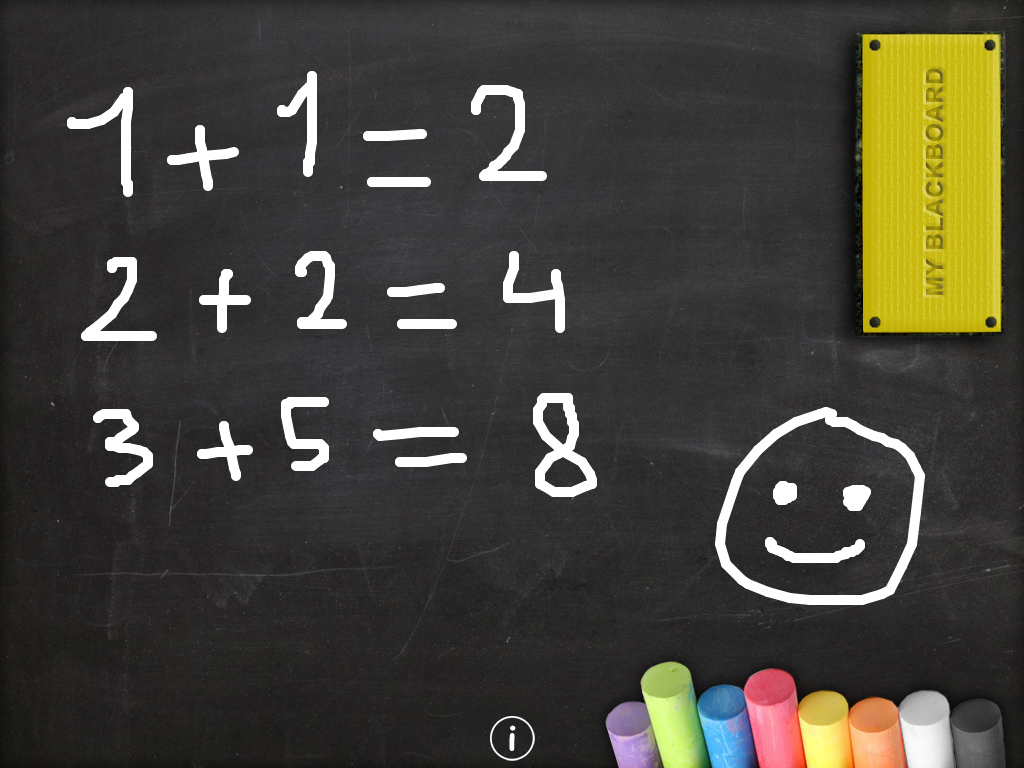 1 + 1 = 2
2 + 2 = 4
3 + 5 = 8
MY BLACKBOARD
i